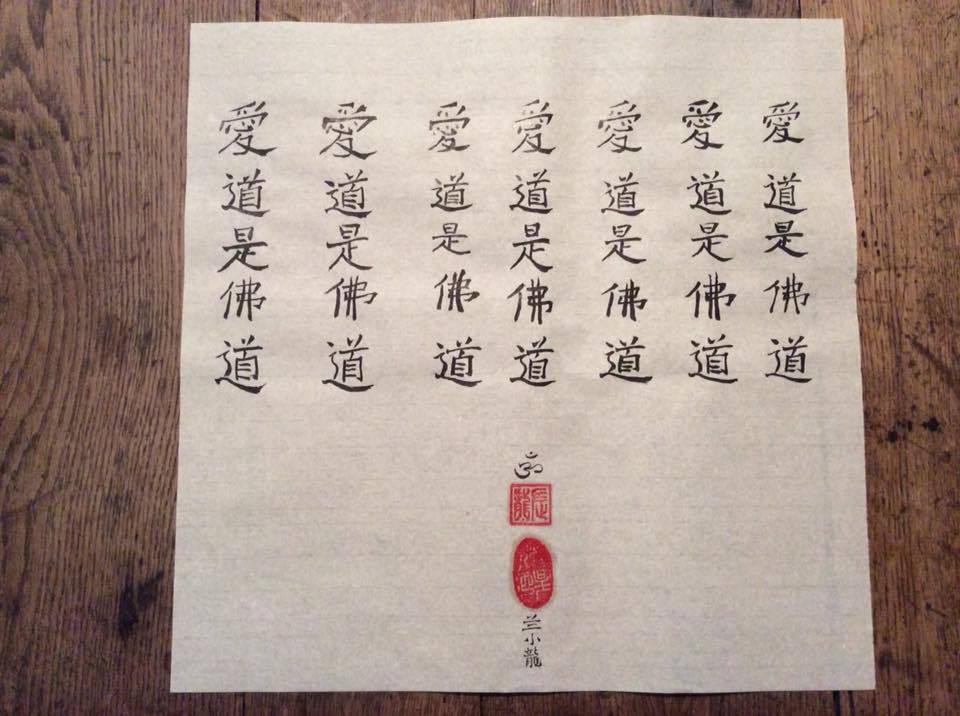 愛道是佛道
愛道是佛道
愛道是佛道
愛道是佛道
愛道是佛道
愛道是佛道
愛道是佛道
兰小龍